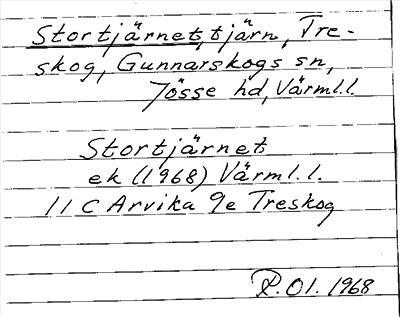 Stortjärnet, tjärn, Tre-
skog, Gunnarskogs sn,
Jösse hd, Värml.l.
Stortjärnet
ek (1968) Värml.l.
11 C Arvika 9e Treskog
P.O1. 1968